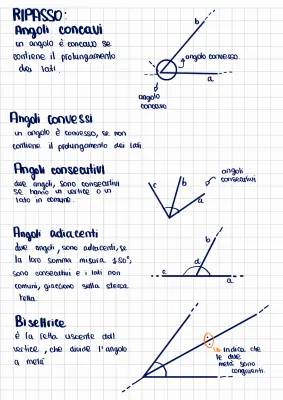 RIPASSO:
Angoli concavi
un angolo è concavo se
contiene il prolungamento
dei lati.
b
angolo convesso
a
angolo
concavo
Angoli convessi
un angolo è convesso, se non
contiene il prolungamento dei lati.
Angoli consecutivi
due angoli, sono consecutivi
se hanno un vertice o un
lato in comune.
c
b
a
angoli
consecutivi
Angoli adiacenti
due angoli, sono adiacenti, se
la loro somma misura 180°,
sono consecutivi e i lati non
comuni, giacciono sulla stessa
retta.
b
d
c
a
Bisettrice
è la retta uscente dal
vertice, che divide l'angolo
a metà
indica che
le due
metà sono
congruenti.